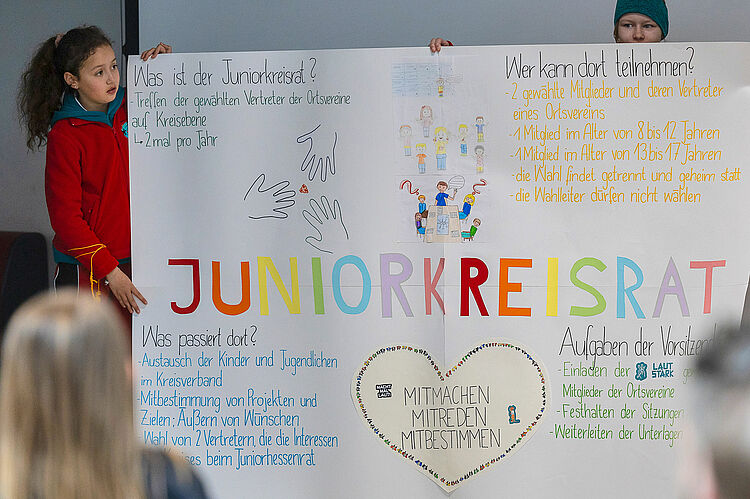 Was ist der Juniorkreisrat?
- Treffen der gewählten Vertreter der Ortsvereine
auf Kreisebene
↳ 2 mal pro Jahr
Wer kann dort teilnehmen?
- 2 gewählte Mitglieder und deren Vertreter
eines Ortsvereins
- 1 Mitglied im Alter von 8 bis 12 Jahren
- 1 Mitglied im Alter von 13 bis 17 Jahren
- die Wahl findet getrennt und geheim statt
- die Wahlleiter dürfen nicht wählen
JUNIORKREISRAT
Was passiert dort?
- Austausch der Kinder und Jugendlichen
im Kreisverband
- Mitbestimmung von Projekten und
Zielen; Äußern von Wünschen
- Wahl von 2 Vertretern, die die Interessen
beim Juniorhessenrat
MACHT
MAL
LAUT!
MITMACHEN
MITREDEN
MITBESTIMMEN
Aufgaben der
- Einladen der LAUT STARK
Mitglieder der Ortsvereine
- Festhalten der Sitzungen
- Weiterleiten der